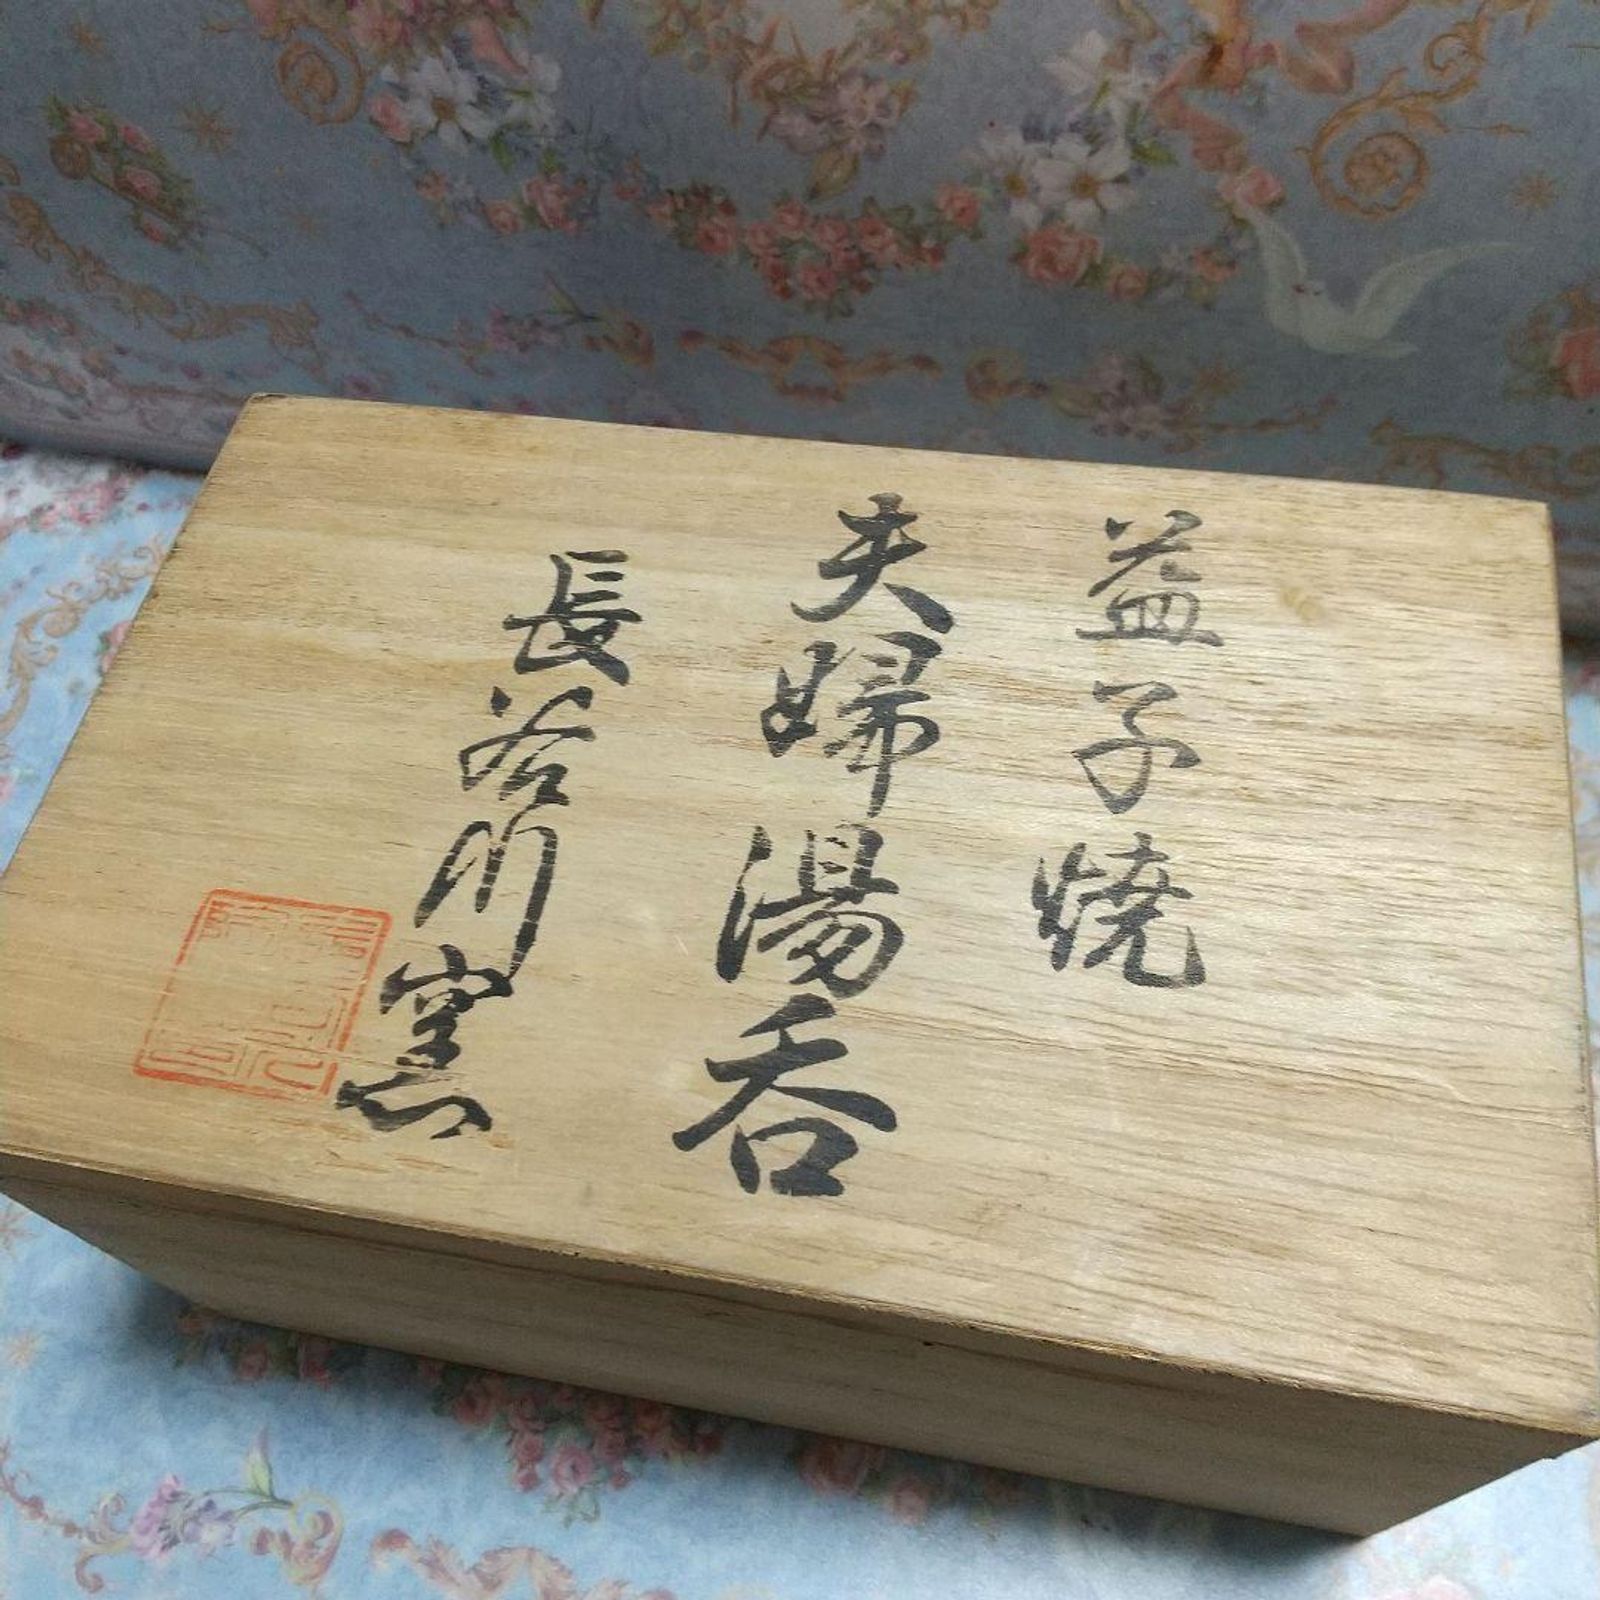 益子焼
夫婦湯呑
長谷川窯